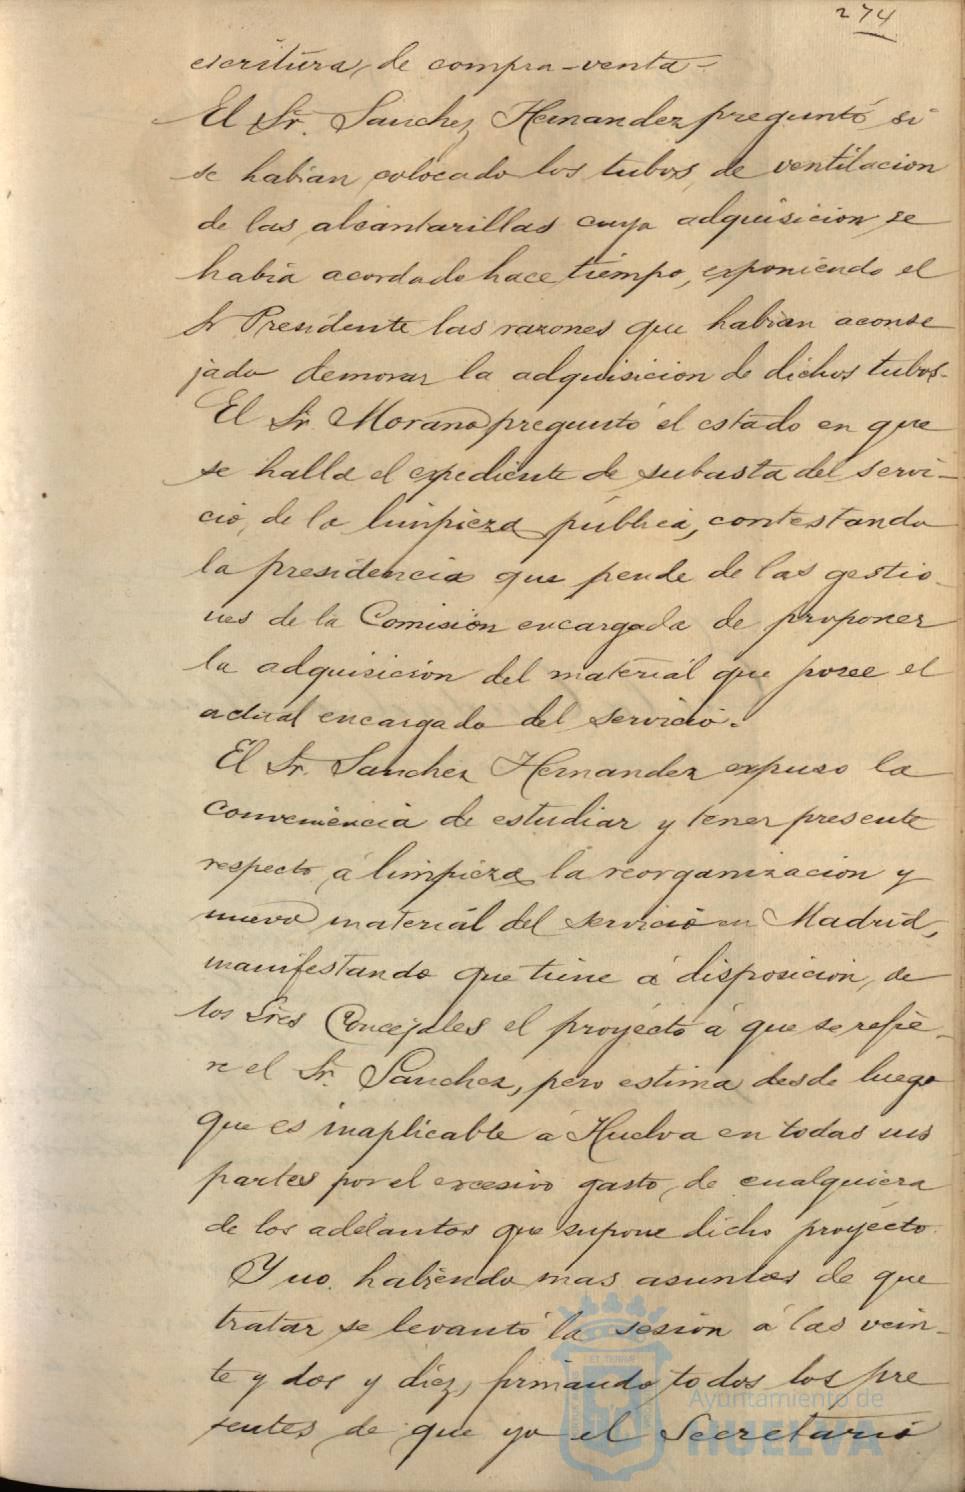 274
escritura, de compra-venta-
El Sr. Sanchez Hernandez preguntó si
se habian colocado los tubos, de ventilacion
de las alcantarillas cuya adquisicion se
habia acordado hace tiempo, exponiendo el
Sr Presidente las razones que habian aconse
jado demorar la adquisicion de dichos tubos-
El Sr. Morano preguntó el estado en que
se halla el expediente de subasta del servi-
cio, de la limpieza pública, contestando
la presidencia que pende de las gestio-
nes de la Comisión encargada de proponer
la adquisición del material que posee el
actual encargado del servicio.
El Sr. Sanchez Hernandez expuso la
conveniencia de estudiar y tener presente
respecto á limpieza la reorganizacion y
nuevo material del servicio en Madrid,
manifestando que tiene á disposicion, de
los Sres Concejales el proyecto á que se refie-
re el Sr. Sanchez, pero estima desde luego
que es inaplicable á Huelva en todas sus
partes por el excesivo gasto, de cualquiera
de los adelantos que supone dicho proyecto.
Y no habiendo mas asuntos de que
tratar se levantó la sesion á las vein-
te y dos y diez, firmando todos los pre
sentes de que yo el Secretario
Ayuntamiento de
HUELVA